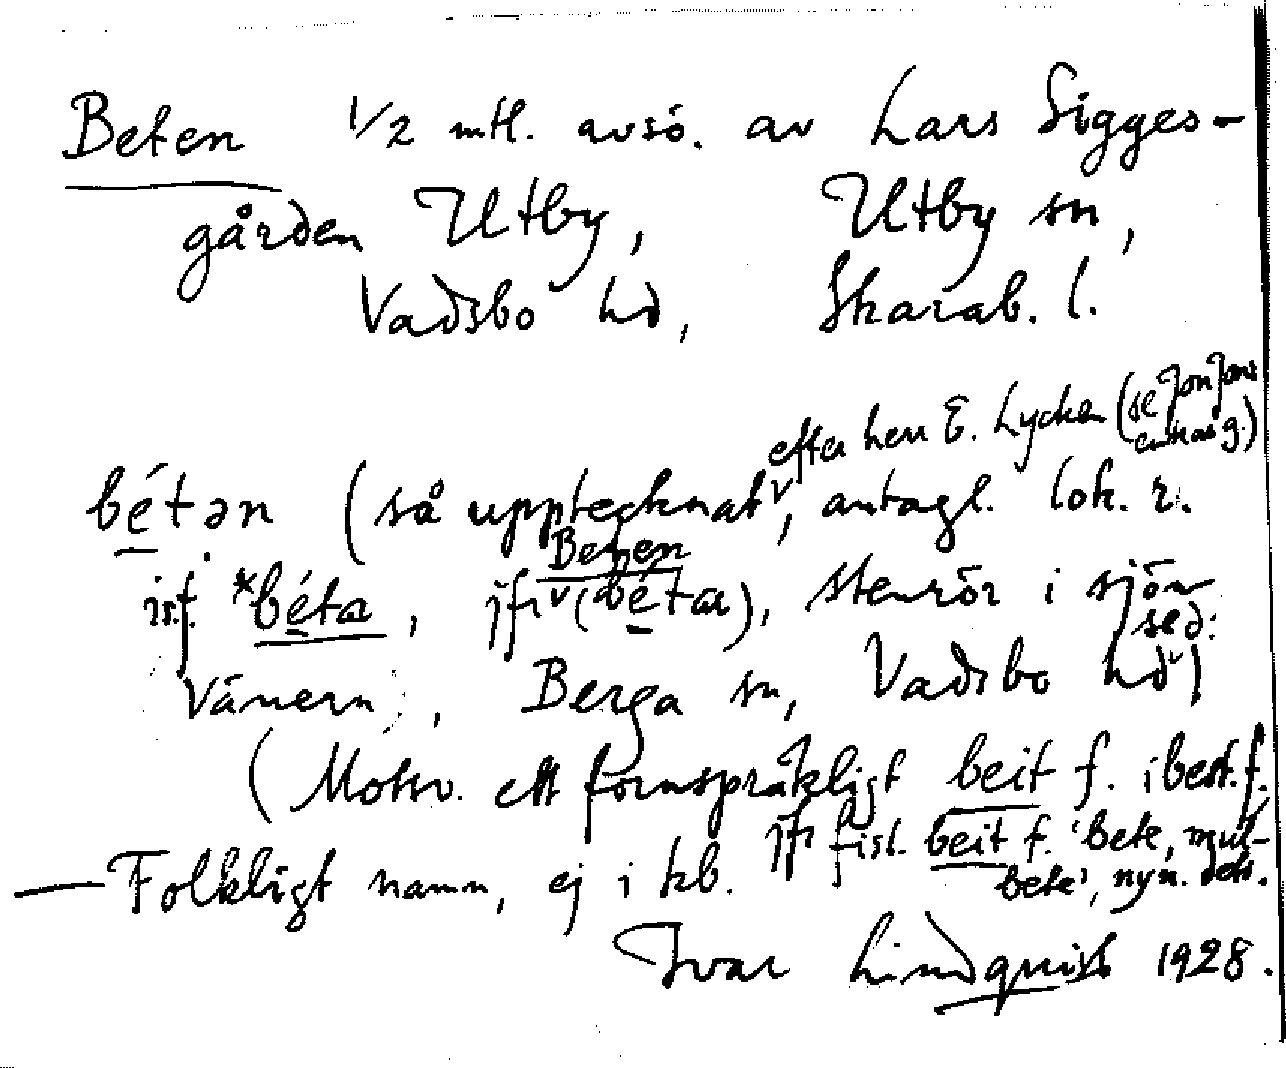 Beten 1/2 mtl. avsö. av Lars Sigges-
gården Utby, Utby sn,
Vadsbo hd, Skarab. l.
efter herr E. Lycken (se Jon Jons
g.)
bétən (så upptecknat, antagl. lok. r.
Beten
ist. *béta, jfr (bétar), stenrör i sjön
Vänern, Berga sn, Vadsbo hd)
(Motsv. ett fornspråkligt beit f. i best. f.
jfr fisl. beit f. 'bete, mul-
bete', nyn. dets.
— Folkligt namn, ej i kb.
Ivar Lindquist 1928.